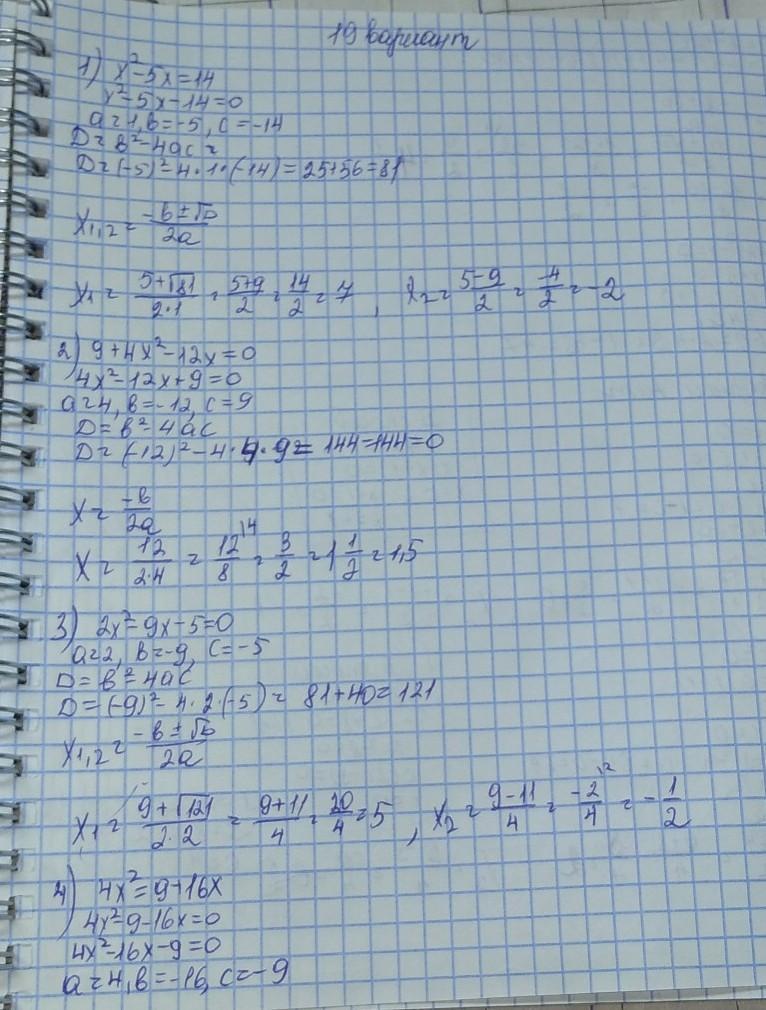 19 вариант
1) x²-5x=14
x²-5x-14=0
a=1, b=-5, c=-14
D=b²-4ac=
D=(-5)²-4·1·(-14)=25+56=81
x₁,₂=(-b±√D)/2a
x₁=(5+√81)/(2·1)=(5+9)/2=14/2=7, x₂=(5-9)/2=-4/2=-2
2) 9+4x²-12x=0
4x²-12x+9=0
a=4, b=-12, c=9
D=b²-4ac
D=(-12)²-4·4·9=144-144=0
x=-b/2a
x=12/(2·4)=12/8 |4=3/2=1 1/2=1,5
3) 2x²-9x-5=0
a=2, b=-9, c=-5
D=b²-4ac
D=(-9)²-4·2·(-5)=81+40=121
x₁,₂=(-b±√D)/2a
x₁=(9+√121)/(2·2)=(9+11)/4=20/4=5, x₂=(9-11)/4=-2/4 |2=-1/2
4) 4x²=9+16x
4x²-9-16x=0
4x²-16x-9=0
a=4, b=-16, c=-9